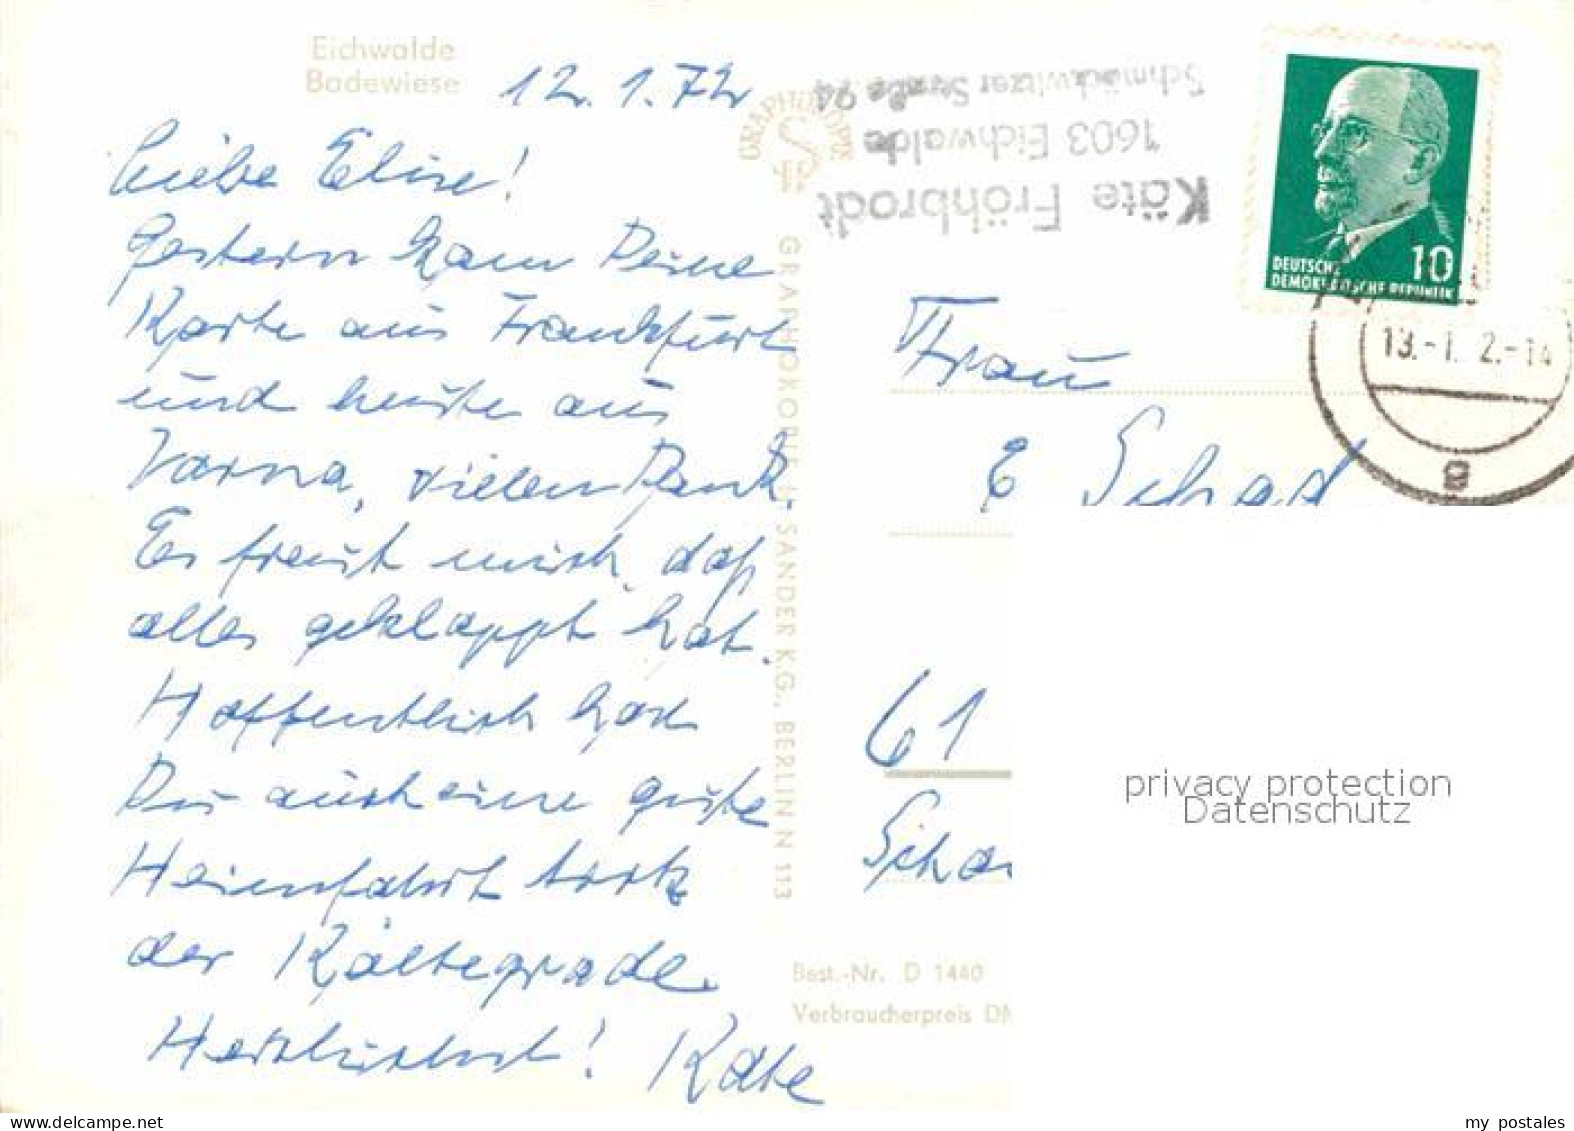 Eichwalde
Badewiese
12.1.72
Liebe Elise!
Gestern kam Deine
Karte aus Frankfurt
und heute aus
Varna, vielen Dank.
Es freut mich, daß
alles geklappt hat.
Hoffentlich hast
Du auch eine gute
Heimfahrt trotz
der Kältegrade.
Herzlichst! Käte
GRAPHOKOPIE
GRAPHOKOPIE H. SANDER KG., BERLIN N 113
Käte Fröhbrodt
1603 Eichwalde
Schmöckwitzer Straße 94
10
DEUTSCHE
DEMOKRATISCHE REPUBLIK
13.-1. 2.-14
a
Frau
E Schad
61
privacy protection
Datenschutz
Best.-Nr. D 1440
Verbraucherpreis DM
my postales
www.delcampe.net